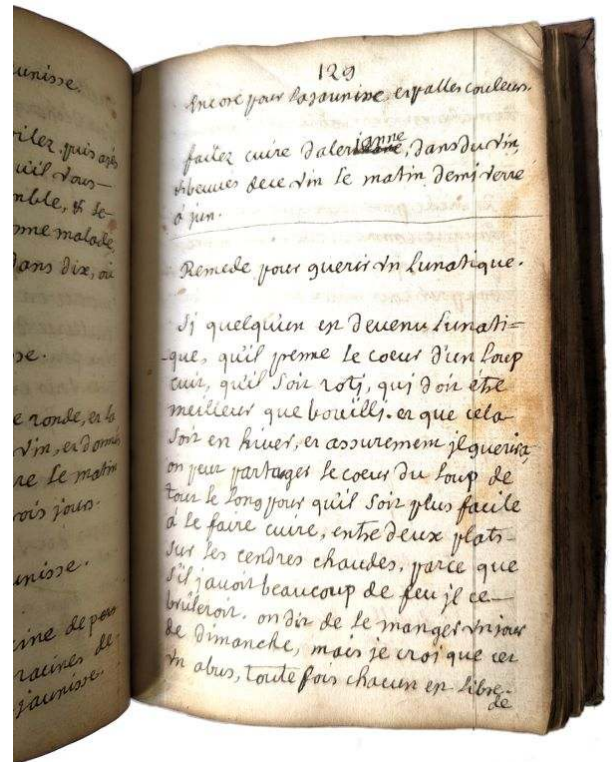 unisse.
vilez, puis
qu'il vous
mble, & le
me malade,
dans dix, ou
se.
e ronde, et la
vin, et donné
re le matin
rois jours.
unisse.
ine de
racines de
jaunisse.
129
Encore pour la jaunisse, et palles couleurs.
faitez cuire d'alerianne, dans du vin,
beuvés de ce vin le matin demi verre
à jun.
Remede pour guerir vn lunatique.
Si quelqu'un est devenu lunati=
que, qu'il prenne le coeur d'un loup
cuit, qu'il soit roti, qui doit éstre
meilleur que boüilli. et que cela
soit en hiver, et assurement il guerira,
on peut partager le coeur du loup de
tout le long pour qu'il soit plus facile
à le faire cuire, entre deux plats
sur les cendres chaudes, parce que
s'il j avoit beaucoup de feu jl ce
brûleroit. on dit de le manger vn jour
de dimanche, mais je croi que cet
vn abus, toute fois chacun est libre
de